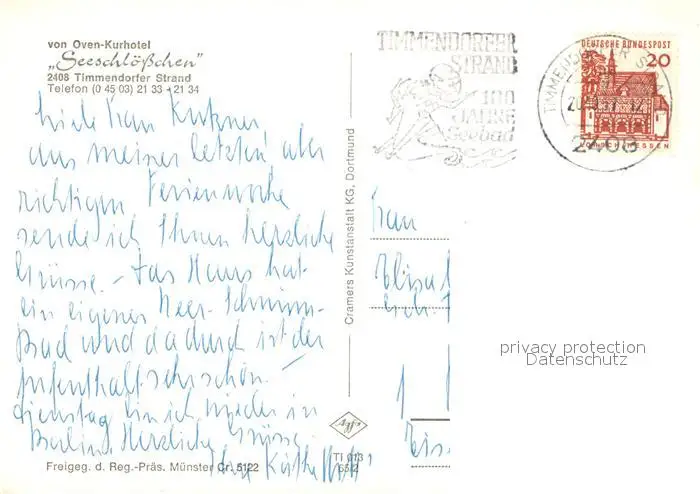 von Oven-Kurhotel
„Seeschlößchen"
2408 Timmendorfer Strand
Telefon (0 45 03) 21 33 + 21 34
TIMMENDORFER
STRAND
100
JAHRE
Seebad
DEUTSCHE BUNDESPOST
20
LORSCH/HESSEN
2408
Liebe Frau
aus meiner letzten aber
richtigen Ferienwoche
sende ich Ihnen herzliche
Grüsse. - Das Haus hat
ein eigenes Meer-Schwimm-
Bad und dadurch ist der
Aufenthalt sehr schön. -
Dienstag bin ich wieder in
Berlin. Herzliche Grüsse
Ihre Käthe
Frau
Cramers Kunstanstalt KG, Dortmund
Agfa
Ti 013
Freigeg. d. Reg.-Präs. Münster Cr. 5122
privacy protection
Datenschutz